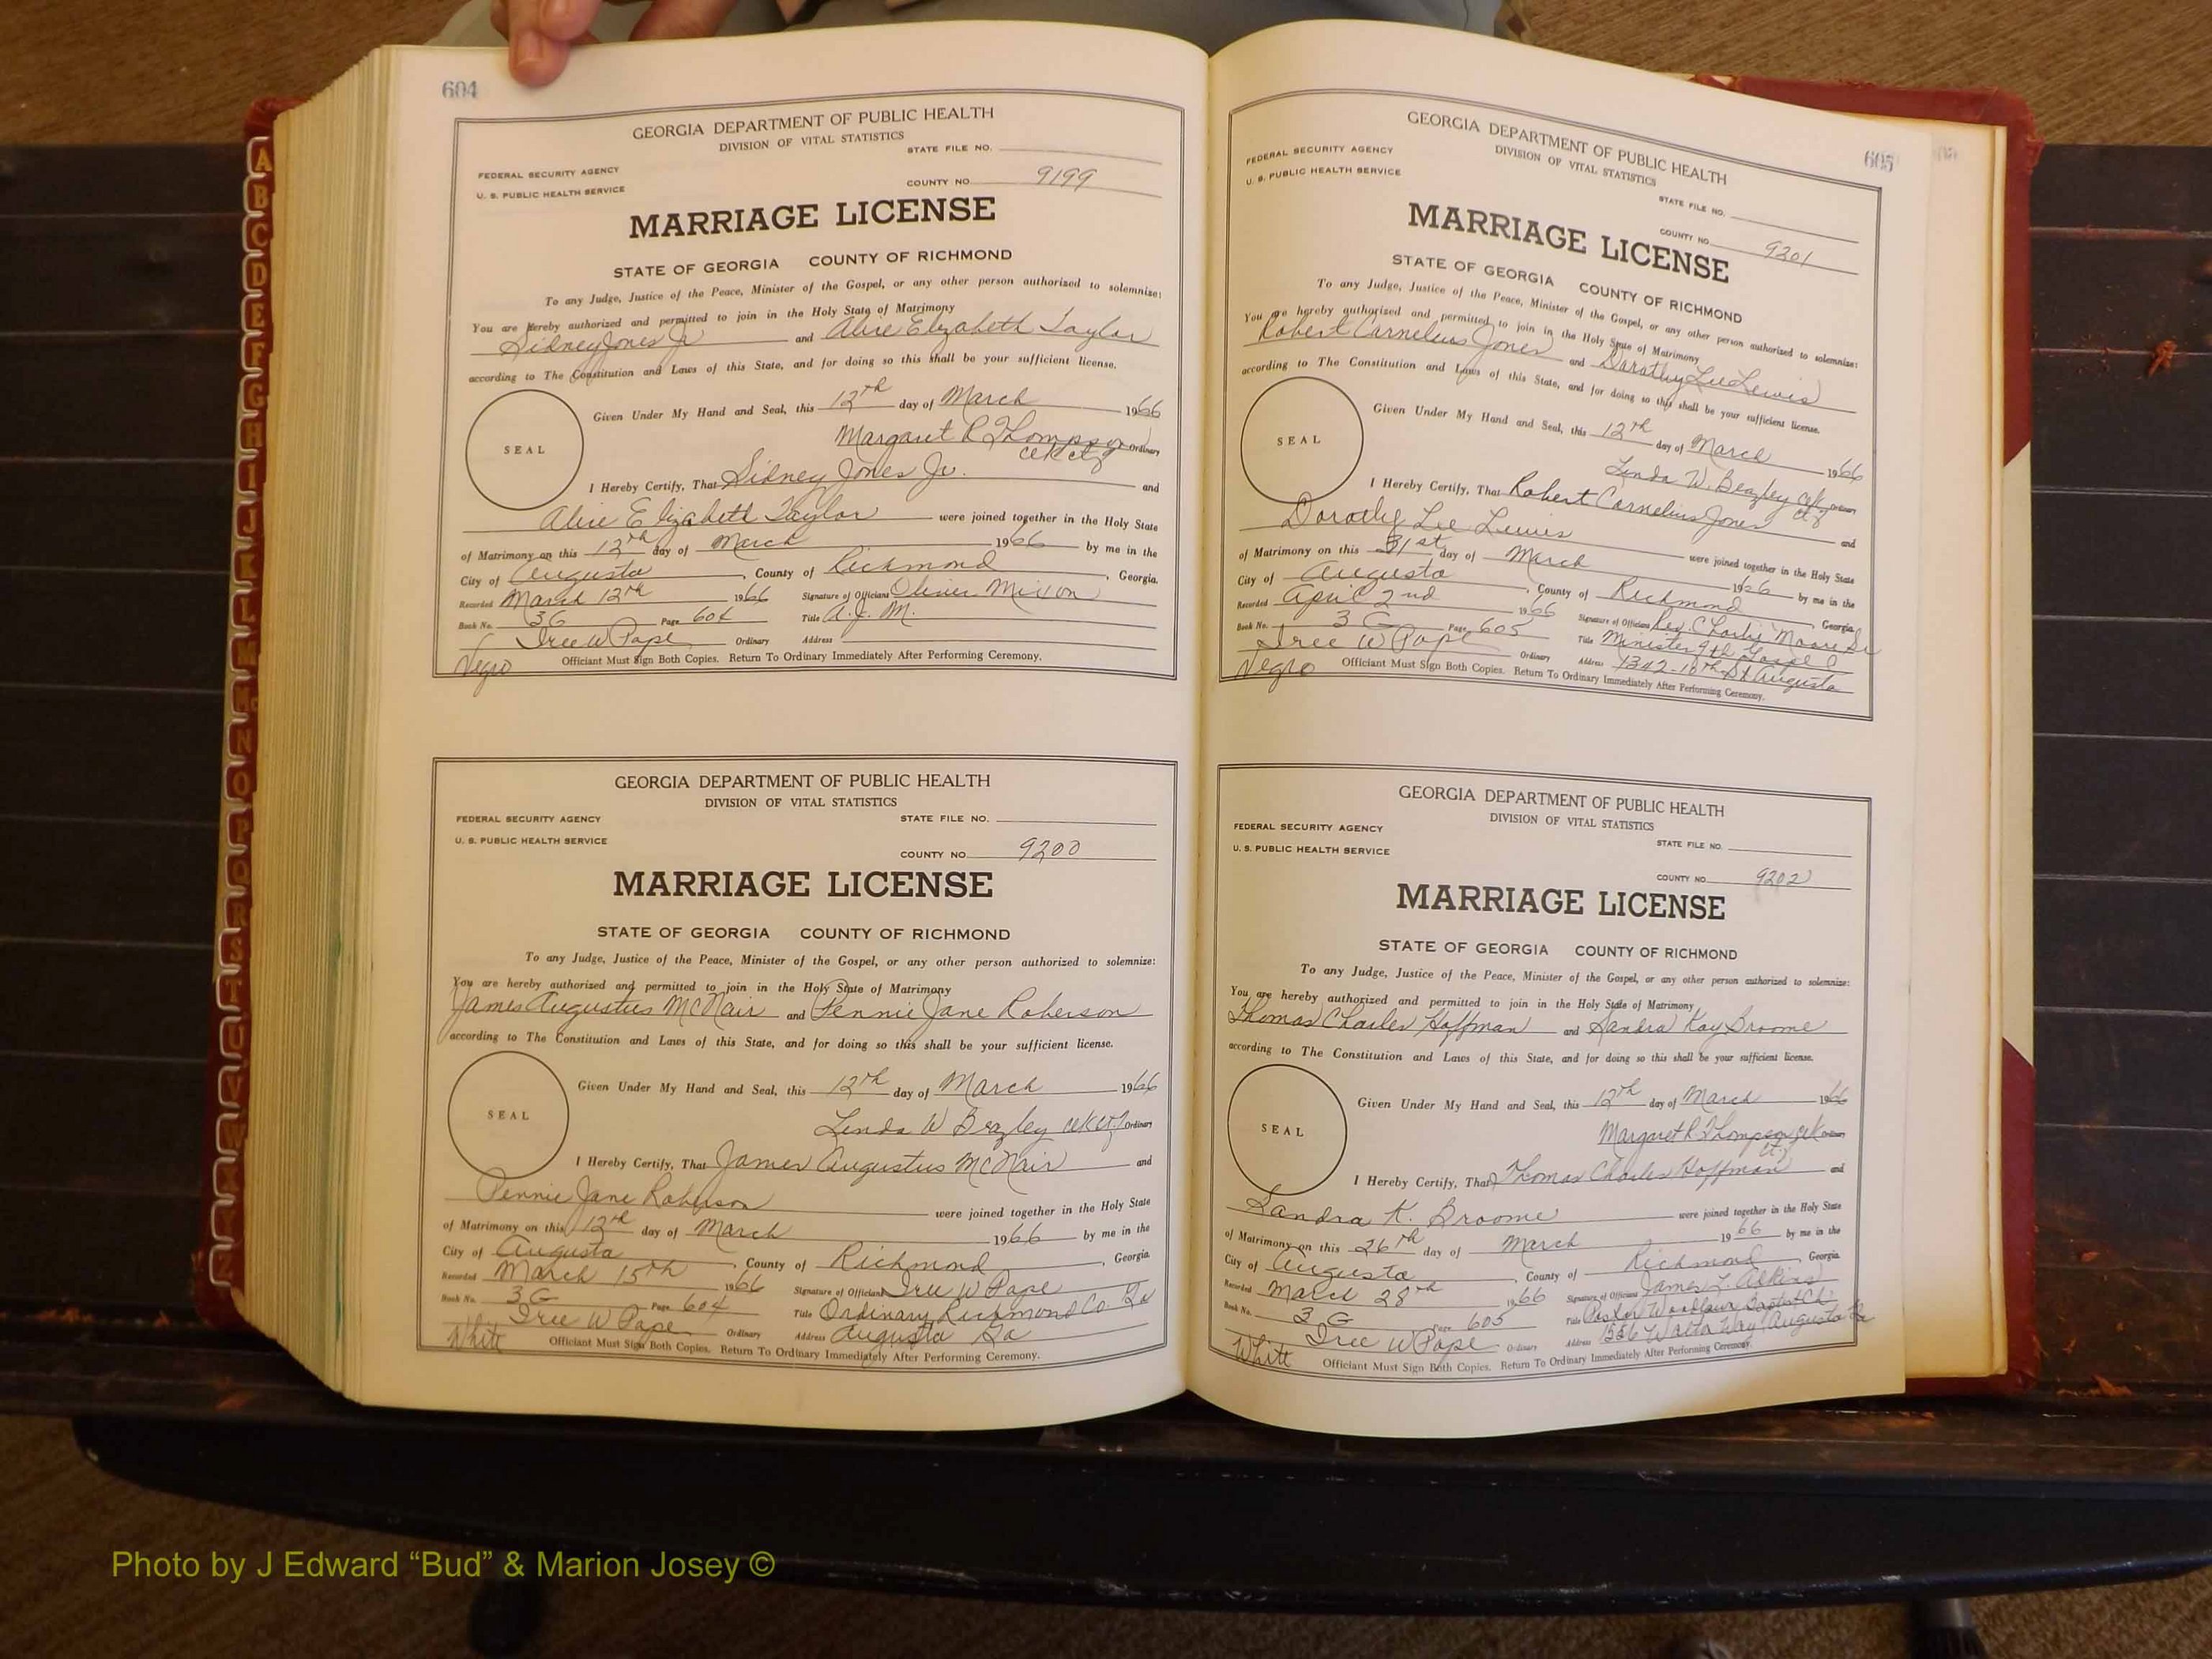 604
GEORGIA DEPARTMENT OF PUBLIC HEALTH
DIVISION OF VITAL STATISTICS
STATE FILE NO.
FEDERAL SECURITY AGENCY
U. S. PUBLIC HEALTH SERVICE
COUNTY NO. 9199
MARRIAGE LICENSE
STATE OF GEORGIA COUNTY OF RICHMOND
To any Judge, Justice of the Peace, Minister of the Gospel, or any other person authorized to solemnize:
You are hereby authorized and permitted to join in the Holy State of Matrimony
Sidney Jones Jr and Alice Elizabeth Taylor
according to The Constitution and Laws of this State, and for doing so this shall be your sufficient license.
SEAL
Given Under My Hand and Seal, this 12th day of March 1966
Margaret R Thompson Ordinary
I Hereby Certify, That Sidney Jones Jr. and
Alice Elizabeth Taylor were joined together in the Holy State
of Matrimony on this 12th day of March 1966 by me in the
City of Augusta, County of Richmond, Georgia.
Recorded March 12th 1966 Signature of Officiant Oliver Mixon
Book No. 3G Page 604 Title A. J. M.
Iree W Pope Ordinary Address
Negro Officiant Must Sign Both Copies. Return To Ordinary Immediately After Performing Ceremony.
GEORGIA DEPARTMENT OF PUBLIC HEALTH
DIVISION OF VITAL STATISTICS
FEDERAL SECURITY AGENCY STATE FILE NO.
U. S. PUBLIC HEALTH SERVICE
COUNTY NO. 9200
MARRIAGE LICENSE
STATE OF GEORGIA COUNTY OF RICHMOND
To any Judge, Justice of the Peace, Minister of the Gospel, or any other person authorized to solemnize:
You are hereby authorized and permitted to join in the Holy State of Matrimony
James Augustus McNair and Pennie Jane Roberson
according to The Constitution and Laws of this State, and for doing so this shall be your sufficient license.
SEAL
Given Under My Hand and Seal, this 12th day of March 1966
Linda W Beazley Ordinary
I Hereby Certify, That James Augustus McNair and
Pennie Jane Roberson were joined together in the Holy State
of Matrimony on this 12th day of March 1966 by me in the
City of Augusta, County of Richmond, Georgia.
Recorded March 15th 1966 Signature of Officiant Iree W Pope
Book No. 3G Page 604 Title Ordinary, Richmond Co. Ga
Iree W Pope Ordinary Address Augusta Ga
White Officiant Must Sign Both Copies. Return To Ordinary Immediately After Performing Ceremony.
605
GEORGIA DEPARTMENT OF PUBLIC HEALTH
DIVISION OF VITAL STATISTICS
FEDERAL SECURITY AGENCY
U. S. PUBLIC HEALTH SERVICE
STATE FILE NO.
COUNTY NO. 9201
MARRIAGE LICENSE
STATE OF GEORGIA COUNTY OF RICHMOND
To any Judge, Justice of the Peace, Minister of the Gospel, or any other person authorized to solemnize:
You are hereby authorized and permitted to join in the Holy State of Matrimony
Robert Cornelius Jones and Dorothy Lee Lewis
according to The Constitution and Laws of this State, and for doing so this shall be your sufficient license.
SEAL
Given Under My Hand and Seal, this 12th day of March 1966
Linda W. Beazley Ordinary
I Hereby Certify, That Robert Cornelius Jones and
Dorothy Lee Lewis were joined together in the Holy State
of Matrimony on this 31st day of March 1966 by me in the
City of Augusta, County of Richmond, Georgia.
Recorded April 2nd 1966 Signature of Officiant Rev. Charlie Moore Sr
Book No. 3G Page 605 Title Minister of the Gospel
Iree W Pope Ordinary Address 1302-10th St Augusta
Negro Officiant Must Sign Both Copies. Return To Ordinary Immediately After Performing Ceremony.
GEORGIA DEPARTMENT OF PUBLIC HEALTH
DIVISION OF VITAL STATISTICS
FEDERAL SECURITY AGENCY
U. S. PUBLIC HEALTH SERVICE
STATE FILE NO.
COUNTY NO. 9202
MARRIAGE LICENSE
STATE OF GEORGIA COUNTY OF RICHMOND
To any Judge, Justice of the Peace, Minister of the Gospel, or any other person authorized to solemnize:
You are hereby authorized and permitted to join in the Holy State of Matrimony
Thomas Charles Hoffman and Sandra Kay Broome
according to The Constitution and Laws of this State, and for doing so this shall be your sufficient license.
SEAL
Given Under My Hand and Seal, this 12th day of March 1966
Margaret R Thompson Ordinary
I Hereby Certify, That Thomas Charles Hoffman and
Sandra K. Broome were joined together in the Holy State
of Matrimony on this 26th day of March 1966 by me in the
City of Augusta, County of Richmond, Georgia.
Recorded March 28th 1966 Signature of Officiant James L. Adkins
Book No. 3G Page 605 Title Pastor Woodlawn Baptist Ch.
Iree W Pope Ordinary Address Walton Way, Augusta Ga
White Officiant Must Sign Both Copies. Return To Ordinary Immediately After Performing Ceremony.
A
B
C
D
E
F
G
H
I
J
K
L
M
Mc
N
O
P
Q
R
S
T
U
V
W
X
Y
Z
Photo by J Edward “Bud” & Marion Josey ©